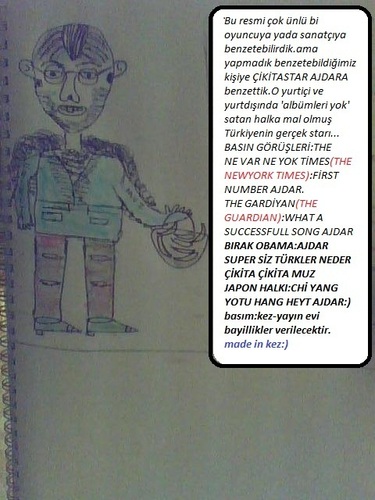 'Bu resmi çok ünlü bi
oyuncuya yada sanatçıya
benzetebilirdik.ama
yapmadık benzetebildiğimiz
kişiye ÇİKİTASTAR AJDARA
benzettik.O yurtiçi ve
yurtdışında 'albümleri yok'
satan halka mal olmuş
Türkiyenin gerçek starı...
BASIN GÖRÜŞLERİ:THE
NE VAR NE YOK TİMES(THE
NEWYORK TIMES):FİRST
NUMBER AJDAR.
THE GARDİYAN(THE
GUARDIAN):WHAT A
SUCCESSFULL SONG AJDAR
BIRAK OBAMA:AJDAR
SUPER SİZ TÜRKLER NEDER
ÇİKİTA ÇİKİTA MUZ
JAPON HALKI:CHİ YANG
YOTU HANG HEYT AJDAR:)
basım:kez-yayın evi
bayillikler verilecektir.
made in kez:)